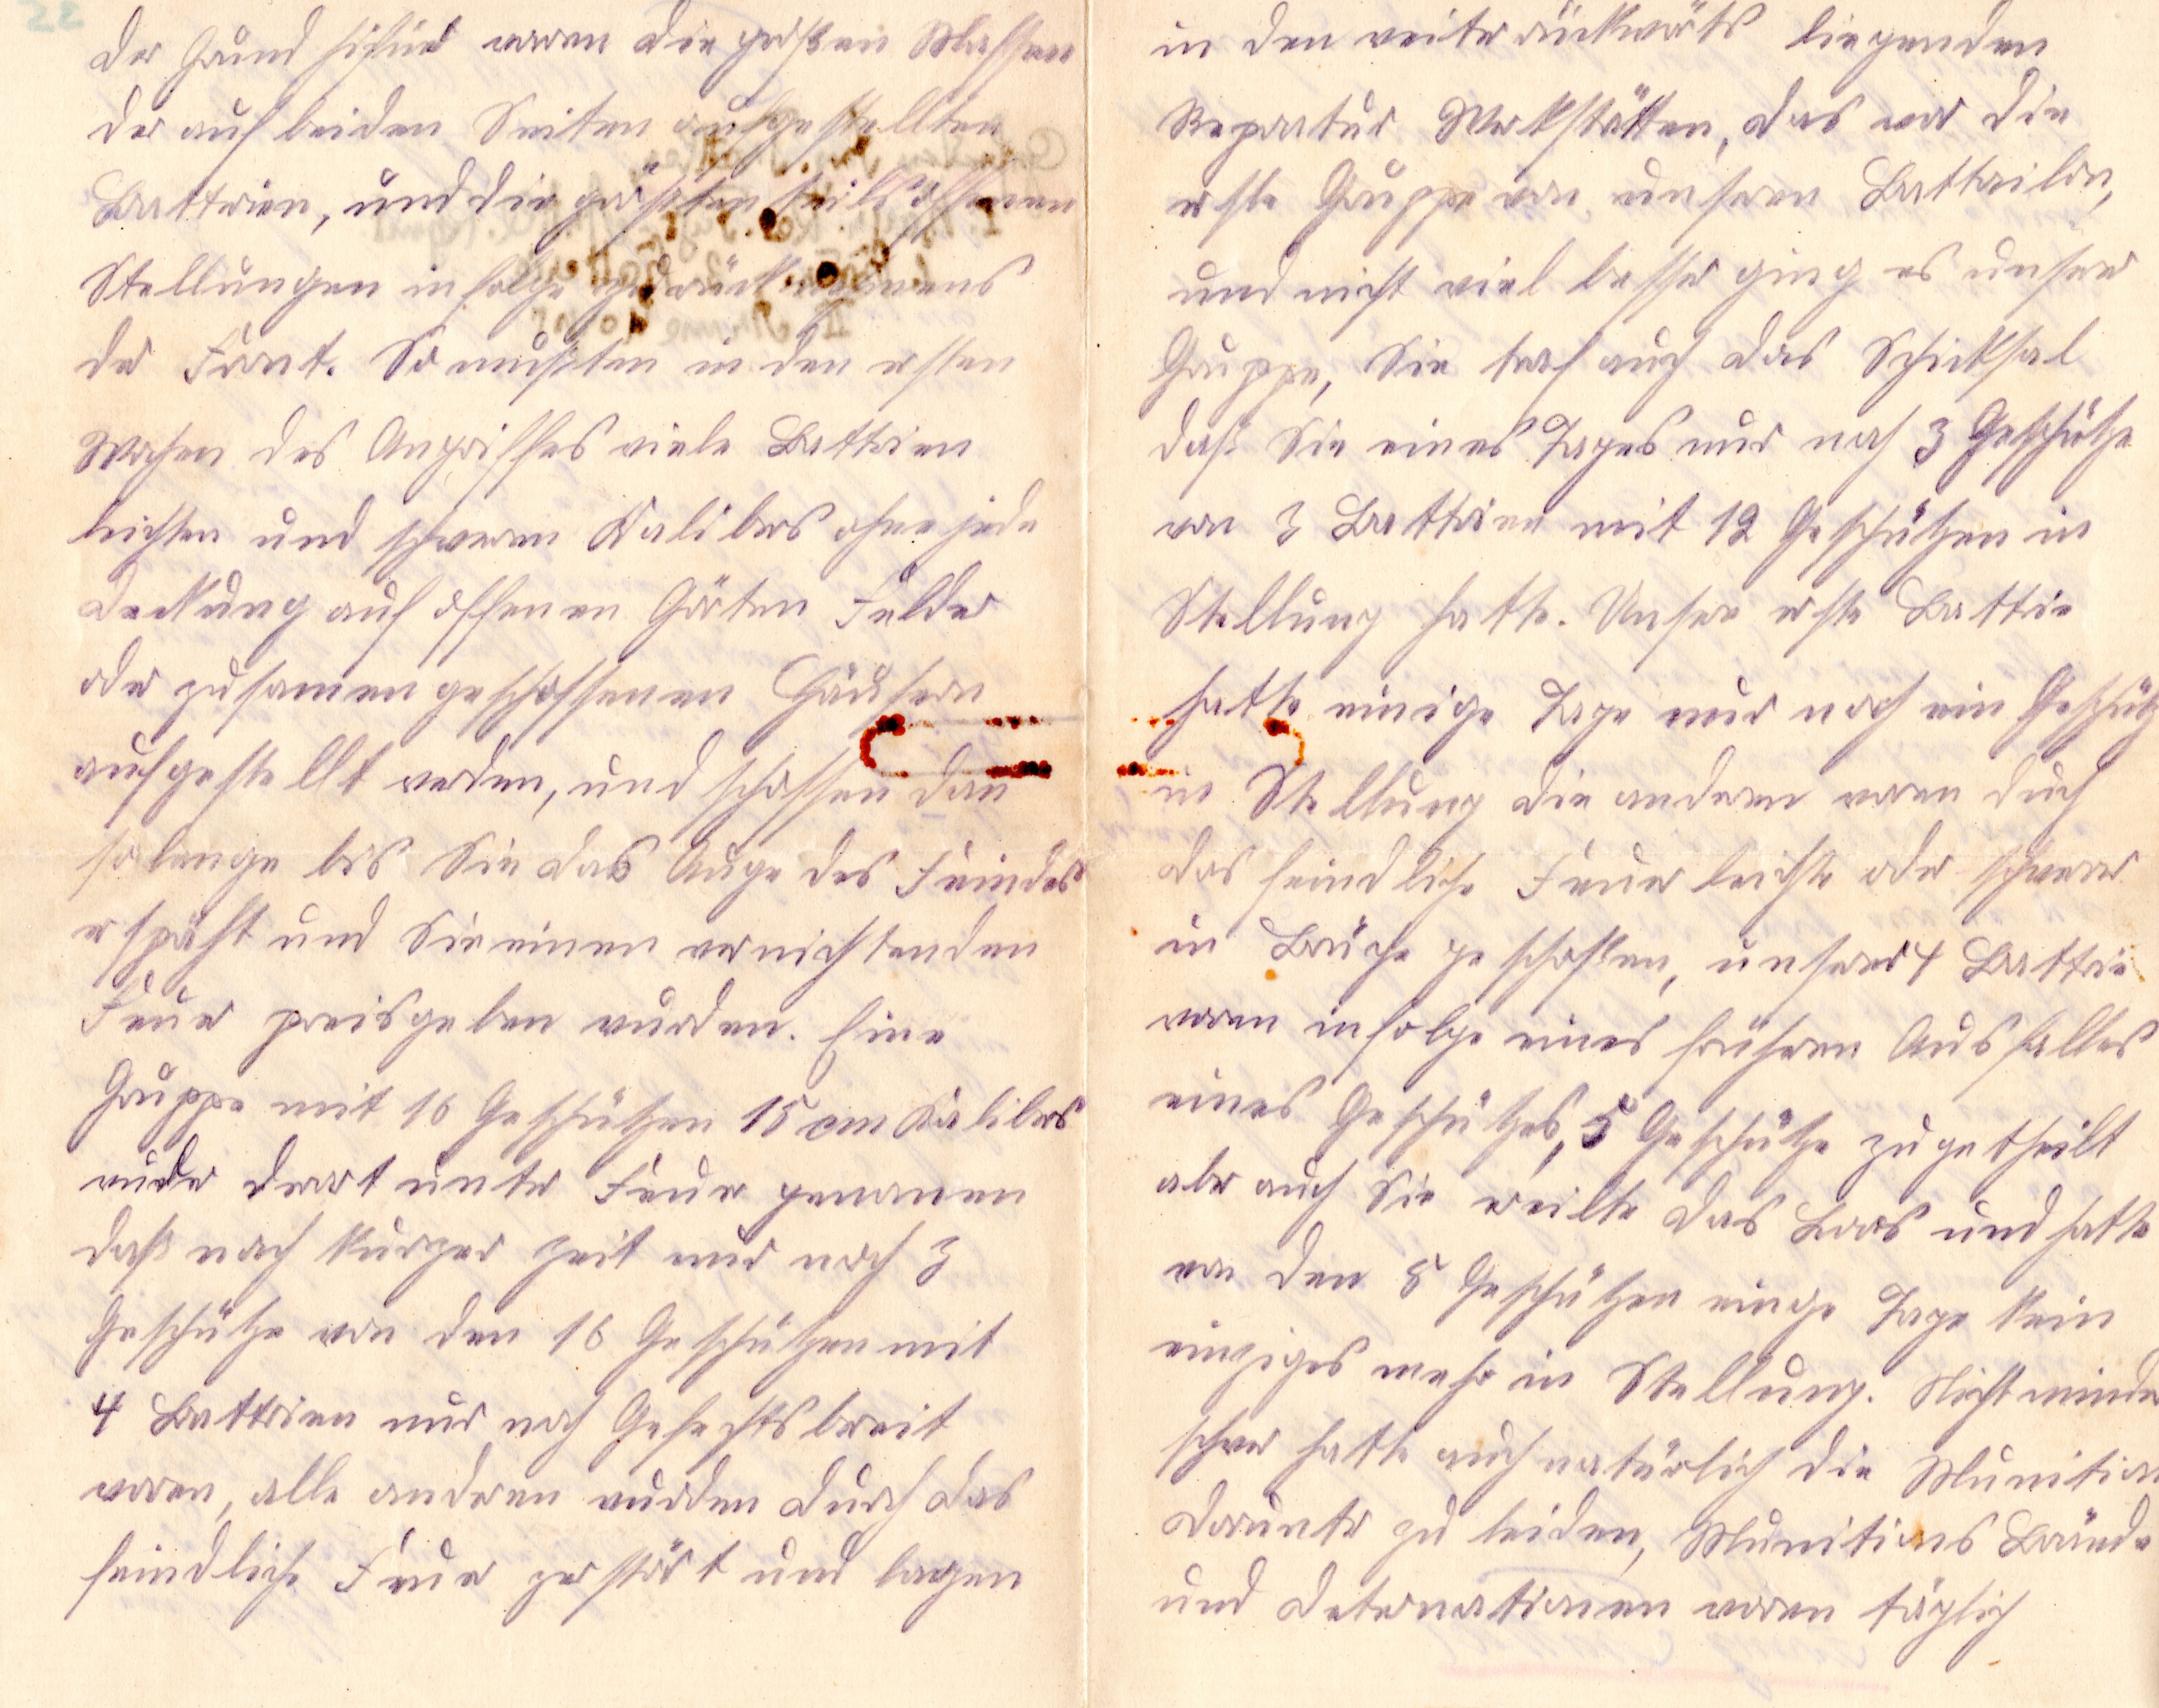 Der Grund hifür waren die großen Massen
der auf beiden Seiten aufgestellten
Battrien, und die größten teils offenen
Stellungen infolge
der Front. So mußten in den ersten
Wochen des Angriffes viele Battrien
leichten und schweren Kalibers ohne jede
Deckung auf offenen Gärten Felder
oder zusamengeschossenen Häusern
aufgestellt werden, und schossen dan
solange bis Sie das Auge des Feindes
erspäht und Sie einen vernichtenden
Feuer preisgeben wurden. Eine
Gruppe mit 16 Geschützen 15 cm Kalibers
wurde derart unter Feuer genomen
daß nach kurzer Zeit nur noch 3
Geschütze von den 16 Geschützen mit
4 Battrien nur noch Gefechtsbreit
waren, alle anderen wurden durch das
feindliche Feuer zerstört und lagen
in den weiter rückwärts liegenden
Reparatur Werkstätten, das war die
erste Gruppe von unseren Battailon,
und nicht viel besser ging es unserer
Gruppe, Sie traf auch das Schicksal
daß Sie eines Tages nur noch 3 Geschütze
von 3 Battrien mit 12 Geschützen in
Stellung hatte. Unsere erste Battrie
hatte einige Tage nur noch ein Geschütz
in Stellung die anderen waren durch
das feindliche Feuer leichte oder schwerer
in Brüche geschossen, unserer 4 Battrie
waren infolge eines früheren Ausfalles
eines Geschützes, 5 Geschütze zugetheilt
aber auch Sie ereilte das Loos und hatte
von den 5 Geschützen einge Tage kein
einziges mehr in Stellung. Nicht minder
schwer hatte auch natürlich die Munition
darunter zu leiden, Munitions Brände
und Deternationen waren täglich